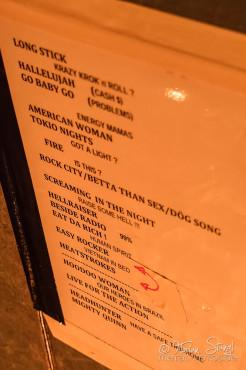 LONG STICK
KRAZY KROK n ROLL ?
HALLELUJAH (CASH $)
GO BABY GO (PROBLEMS)
ENERGY MAMAS
AMERICAN WOMAN
TOKIO NIGHTS
GOT A LIGHT ?
FIRE
IS THIS ?
ROCK CITY/BETTA THAN SEX/DÖG SONG
SCREAMING IN THE NIGHT
RAISE SOME HELL !!!
HELLRAISER
BESIDE RADIO 99%
EAT DA RICH !
HUMAN SPIRIT
EASY ROCKER
VIETNAM IN BED
HEATSTROKES
HOODOO WOMAN
YOUR HEROES IN BRAZIL
LIVE FOR THE ACTION
HAVE A SAFE
HEADHUNTER
MIGHTY QUINN